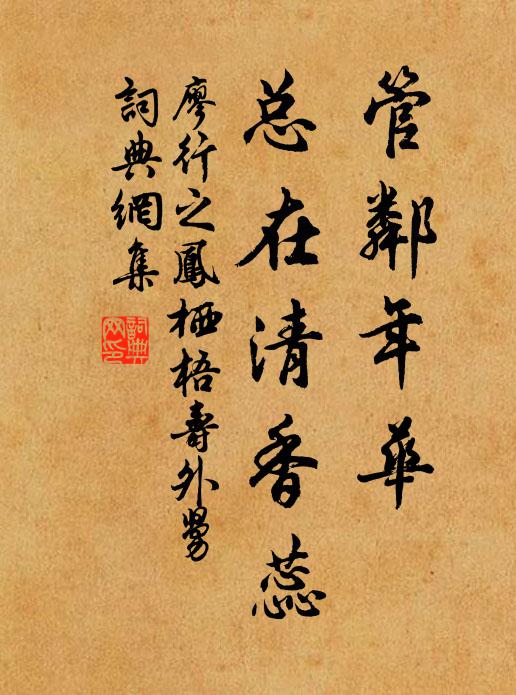 管鄰年華
总在清香蕊
廖行之鳳栖梧壽外舅
詞典網集
詞典网印